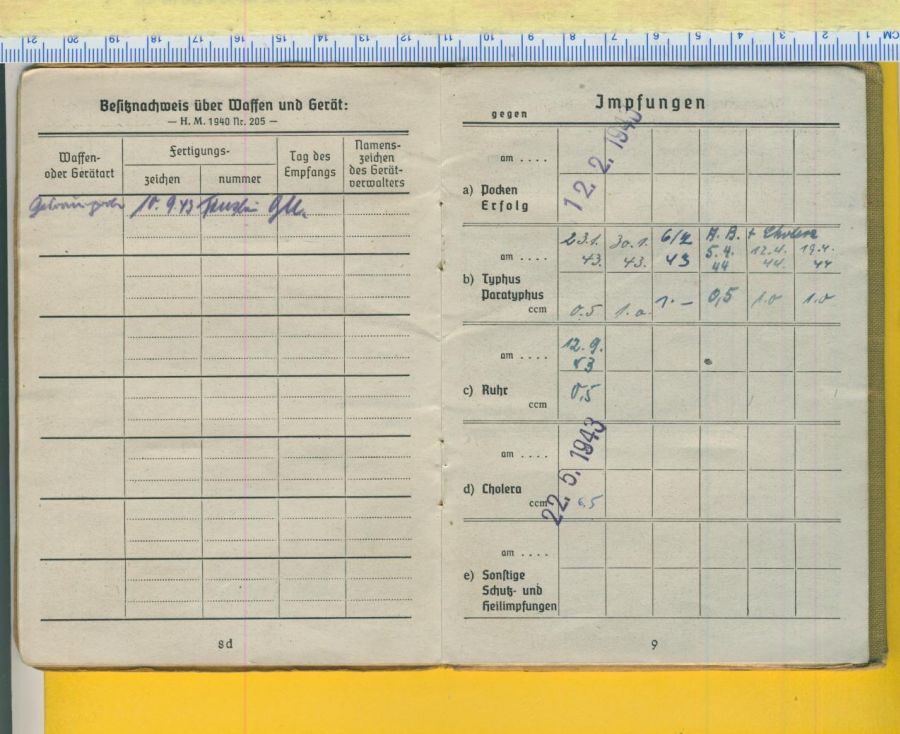 21 20 19 18 17 16 15 14 13 12 11 10 9 8 7 6 5 4 3 2 1 CM
Besitznachweis über Waffen und Gerät:
— H. M. 1940 Nr. 205 —
Waffen-
oder Gerätart
Fertigungs-
zeichen
nummer
Tag des
Empfangs
Namens-
zeichen
des Gerät-
verwalters
10. 9. 43
8d
Impfungen
gegen
am . . . .
12. 2. 194
a) Pocken
Erfolg
23.1. 30.1. 6/2 A. B. + Cholera
am . . . . 43. 43. 43 5.4. 44 12.4. 44. 19.4. 44
b) Typhus
Paratyphus
ccm 0.5 1.0 1.- 0,5 1.0 1.0
am . . . . 12.9. 43
c) Ruhr 0,5
ccm
am . . . .
22. 5. 1943
d) Cholera
ccm 0,5
am . . . .
e) Sonstige
Schutz- und
Heilimpfungen
9